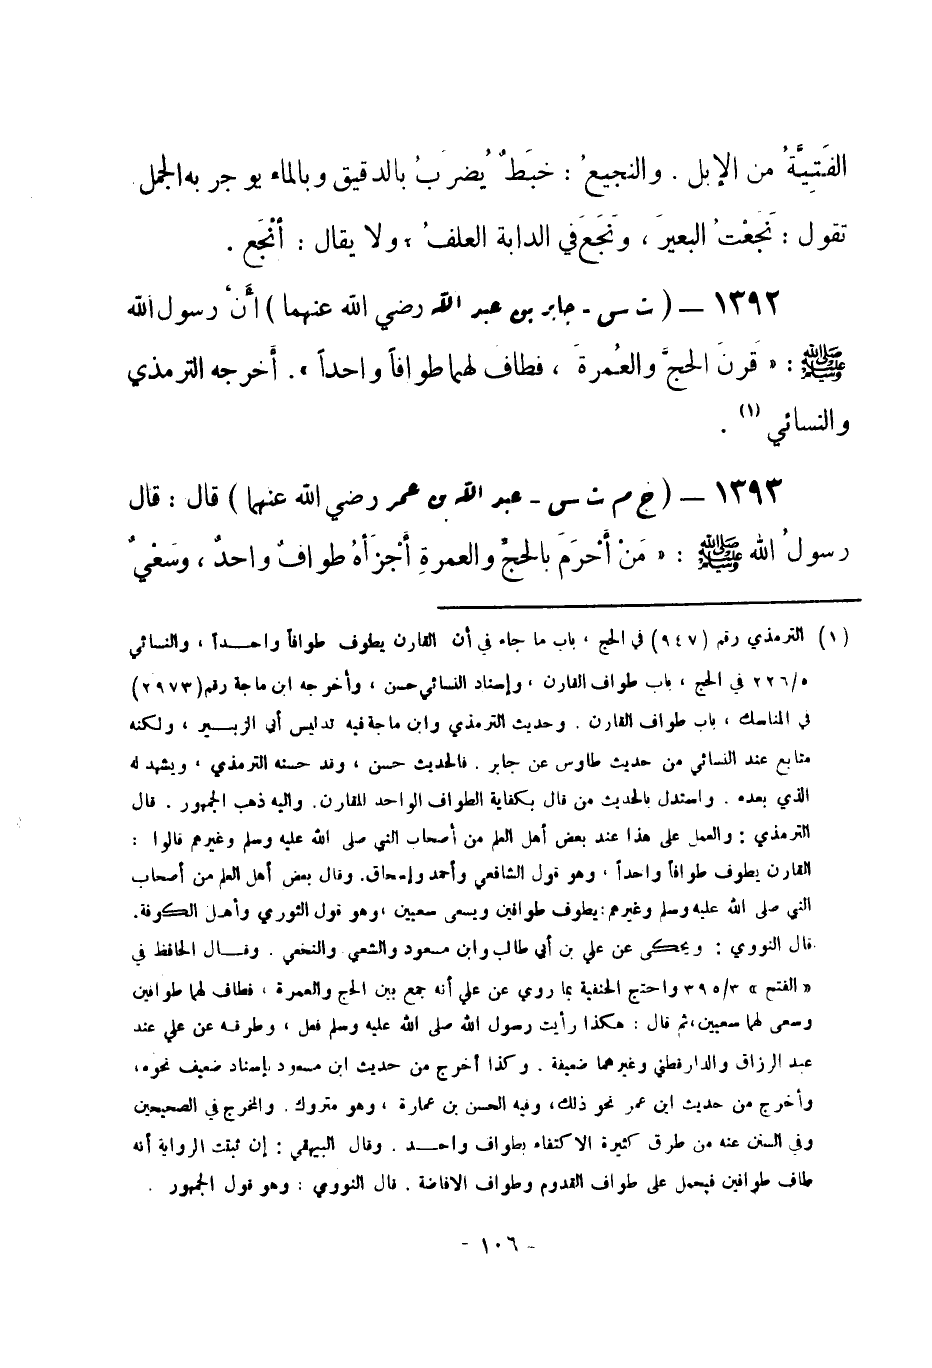 الفَتِيَّةُ من الإبل . والنجيعُ : خبَطٌ يُضرَبُ بالدقيق وبالماء يوجر به الجمل
تقول : نَجَعْتُ البعيرَ ، ونَجَعَ في الدابة العلفُ ، ولا يقال : أنْجَع .
١٣٩٢ – ( ت س - جابر بن عبد الله رضي الله عنهما ) أنَّ رسول الله
ﷺ : « قَرنَ الحجَّ والعُمرةَ ، فطاف لهما طوافاً واحداً » . أخرجه الترمذي
والنسائي (١) .
١٣٩٣ – ( خ م ت س - عبد الله بن عمر رضي الله عنهما ) قال : قال
رسولُ الله ﷺ : « مَنْ أَحْرَمَ بالحجِّ والعمرةِ أَجْزَأَهُ طوافٌ واحدٌ ، وسَعْيٌ
(١) الترمذي رقم (٩٤٧) في الحج ، باب ما جاء في أن القارن يطوف طوافاً واحداً ، والنسائي
٢٢٦/٥ في الحج ، باب طواف القارن ، وإسناد النسائي حسن ، وأخرجه ابن ماجة رقم (٢٩٧٣)
في المناسك ، باب طواف القارن . وحديث الترمذي وابن ماجة فيه تدليس أبي الزبير ، ولكنه
متابع عند النسائي من حديث طاوس عن جابر . فالحديث حسن ، وقد حسنه الترمذي ، ويشهد له
الذي بعده . واستدل بالحديث من قال بكفاية الطواف الواحد للقارن . واليه ذهب الجمهور . قال
الترمذي : والعمل على هذا عند بعض أهل العلم من أصحاب النبي صلى الله عليه وسلم وغيرهم قالوا :
القارن يطوف طوافاً واحداً ، وهو قول الشافعي وأحمد وإسحاق. وقال بعض أهل العلم من أصحاب
النبي صلى الله عليه وسلم وغيرهم : يطوف طوافين ويسعى سعيين ، وهو قول الثوري وأهل الكوفة.
قال النووي : ويحكى عن علي بن أبي طالب وابن مسعود والشعبي والنخعي . وقال الحافظ في
« الفتح » ٣٩٥/٣ واحتج الحنفية بما روي عن علي أنه جمع بين الحج والعمرة ، فطاف لهما طوافين
وسعى لهما سعيين ، ثم قال : هكذا رأيت رسول الله صلى الله عليه وسلم فعل ، وطرقه عن علي عند
عبد الرزاق والدارقطني وغيرهما ضعيفة . وكذا أخرج من حديث ابن مسعود بإسناد ضعيف نحوه،
وأخرج من حديث ابن عمر نحو ذلك، وفيه الحسن بن عمارة ، وهو متروك . والمخرج في الصحيحين
وفي السنن عنه من طرق كثيرة الاكتفاء بطواف واحد . وقال البيهقي : إن ثبتت الرواية أنه
طاف طوافين فيحمل على طواف القدوم وطواف الافاضة . قال النووي : وهو قول الجمهور .
- ١٠٦ -